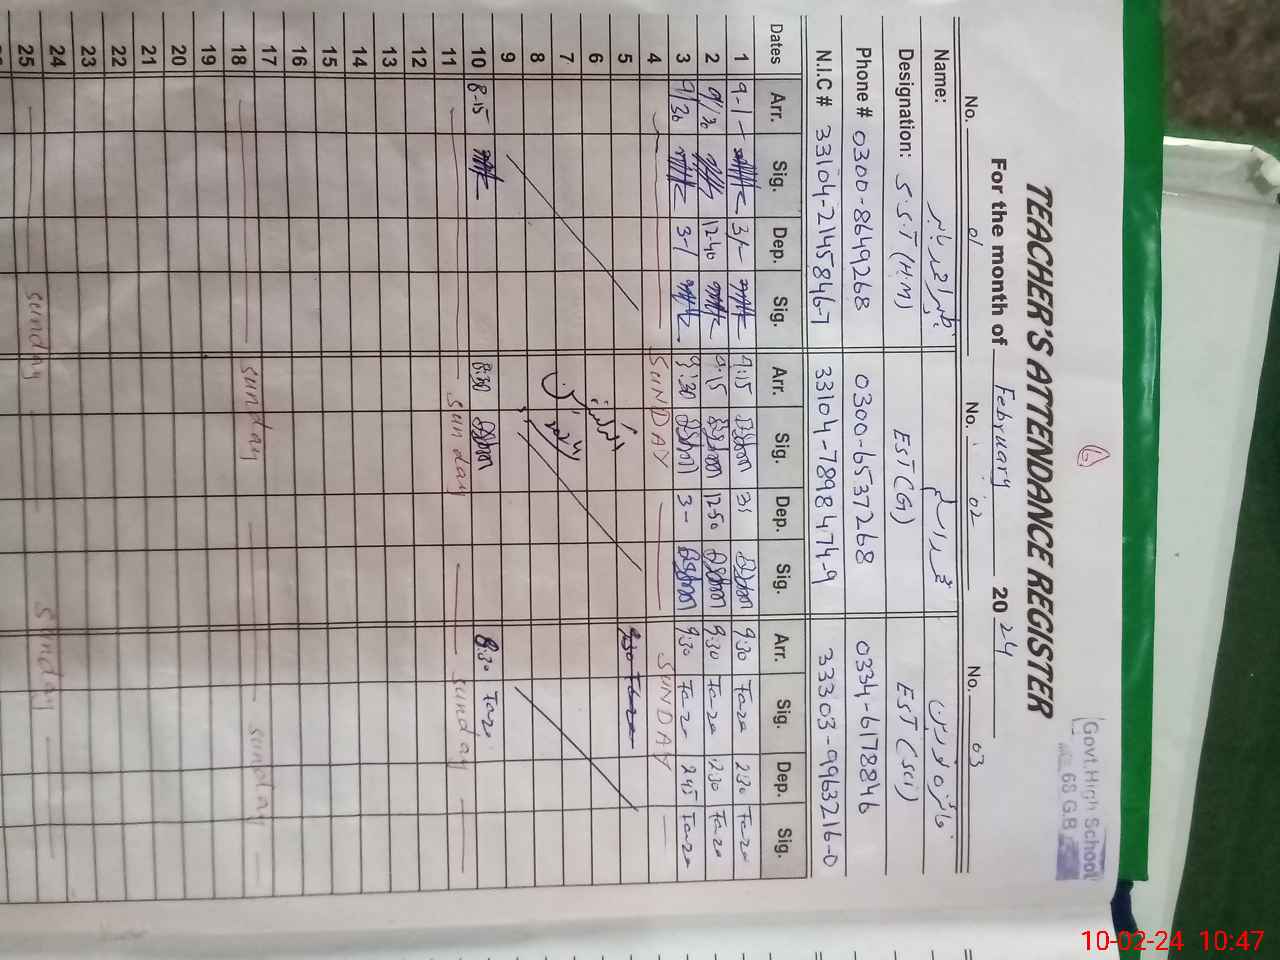 Govt. High School
68 G.B
TEACHER'S ATTENDANCE REGISTER
For the month of February 2024
No. 01 No. 02 No. 03
Name:
Designation: S.S.T (H.M) EST (G) EST (Sci)
Phone # 0300-8649268 0300-6537268 0334-6178846
N.I.C # 33104-2145846-7 33104-7898474-9 33303-9963216-0
Dates Arr. Sig. Dep. Sig. Arr. Sig. Dep. Sig. Arr. Sig. Dep. Sig.
1 9:15 9:30 Faza 2:30 Faza
2 9/30 12-40 9:15 12-50 9:30 Faza 12:30 Faza
3 9/30 9:30 3- 9:30 Faza 2:45 Faza
4 SUNDAY SUNDAY
5 9:30 Faza
6
7
8
9
10 8-15 8:30 8:30 Faza
11 Sunday Sunday
12
13
14
15
16
17
18 Sunday Sunday
19
20
21
22
23
24
25 Sunday Sunday
10-02-24 10:47